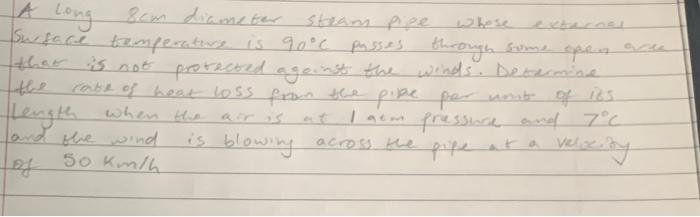 A long 8cm diameter steam pipe whose external
Surface temperature is 90°C passes through some open area
that is not protected against the winds. Determine
the rate of heat loss from the pipe per unit of its
length when the air is at 1 atm pressure and 7°C
and the wind is blowing across the pipe at a velocity
of 50 Km/h